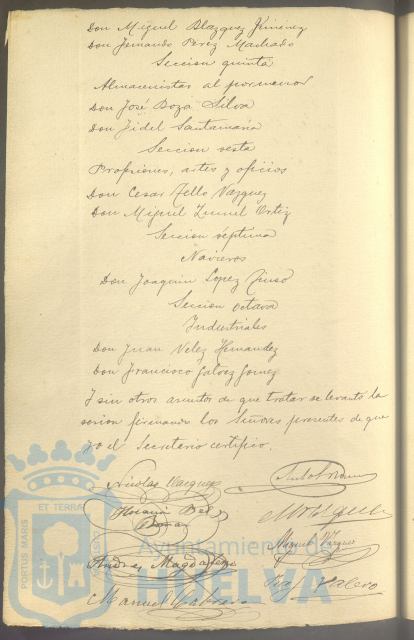 Don Miguel Blazquez Jimenez
Don Fernando Perez Machado
Seccion quinta
Almacenistas al por menor
Don José Boza Silva
Don Fidel Santamaria
Seccion sesta
Profesiones, artes y oficios
Don Cesar Tello Vazquez
Don Miguel Zunel Ortiz
Seccion séptima
Navieros
Don Joaquin Lopez
Seccion octava
Industriales
Don Juan Velez Hernandez
Don Francisco Galvez Gomez
Y sin otros asuntos de que tratar se levantó la
sesion firmando los Señores presentes de que
yo el Secretario certifico.
Nicolas Vazquez
Manuel Vazquez
Andres Magdaleno
Raf. Valero
Manuel Cabrera
PORTUS MARIS ET TERRAE CUSTODIA
Ayuntamiento de
HUELVA